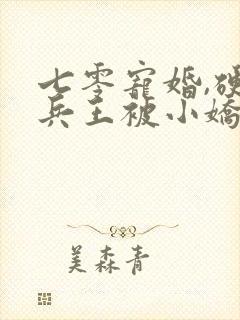 七零寵婚,硬
兵王被小嬌
美森青